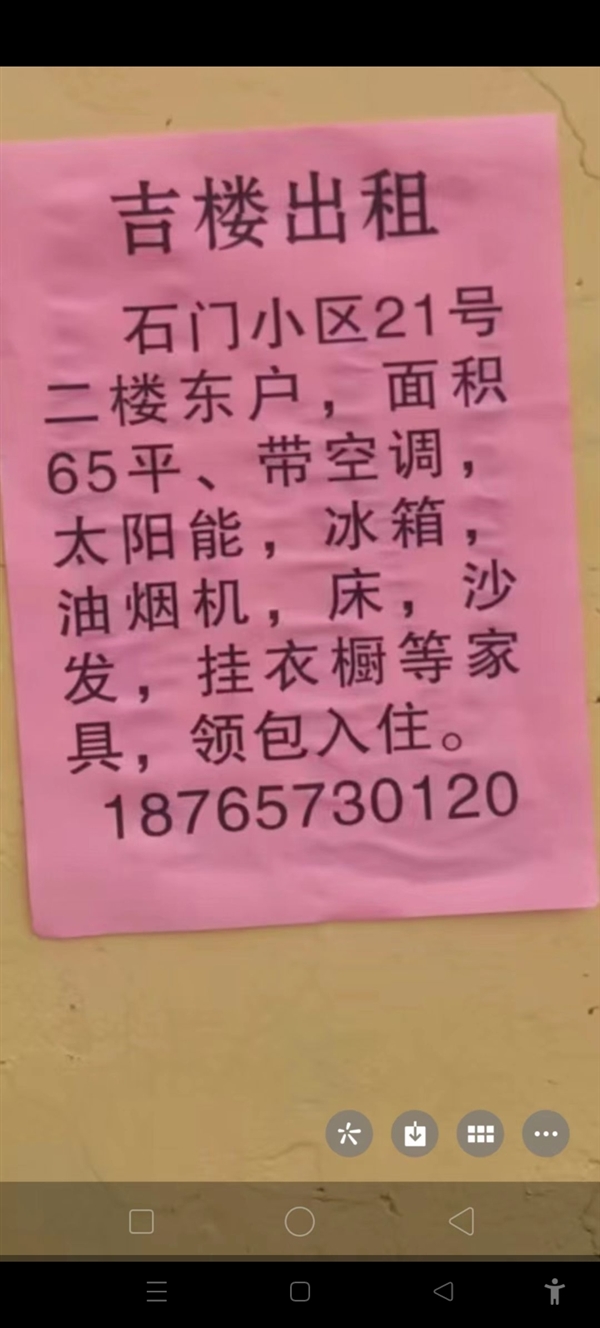 吉楼出租
石门小区21号
二楼东户，面积
65平、带空调，
太阳能，冰箱，
油烟机，床，沙
发，挂衣橱等家
具，领包入住。
18765730120